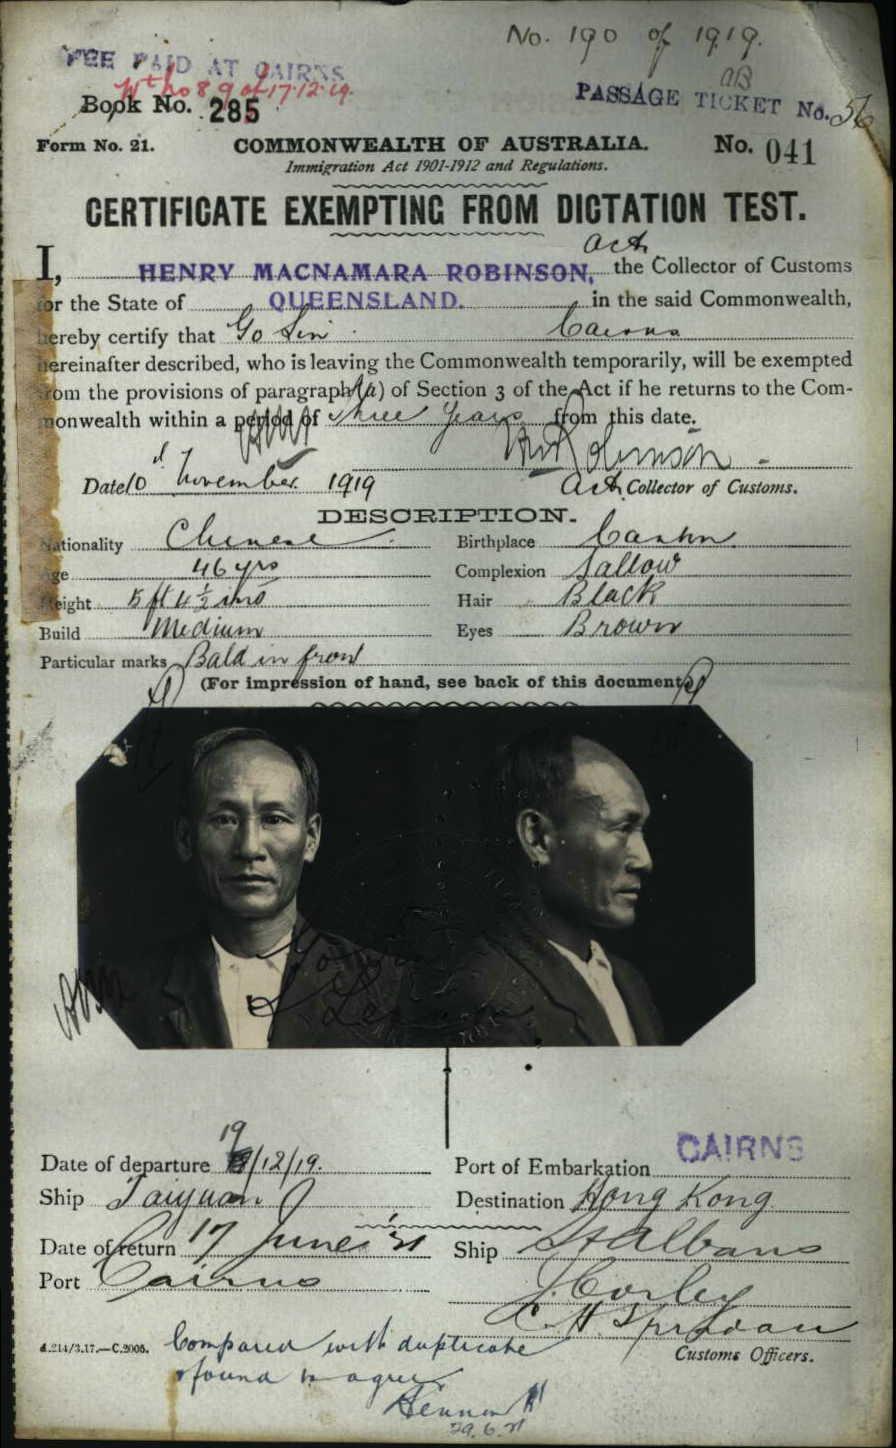 No. 190 of 1919.
FEE PAID AT CAIRNS
17.12.19.
PASSAGE TICKET No. 56
Book No. 285
Form No. 21.
COMMONWEALTH OF AUSTRALIA.
No. 041
Immigration Act 1901-1912 and Regulations.
CERTIFICATE EXEMPTING FROM DICTATION TEST.
Act.
I, HENRY MACNAMARA ROBINSON, the Collector of Customs
for the State of QUEENSLAND. in the said Commonwealth,
hereby certify that Go Sin Cairns
hereinafter described, who is leaving the Commonwealth temporarily, will be exempted
from the provisions of paragraph (a) of Section 3 of the Act if he returns to the Com-
monwealth within a period of three years from this date.
HM Robinson
Date 10 November 1919
Act. Collector of Customs.
DESCRIPTION.
Nationality Chinese
Birthplace Canton
Age 46 yrs
Complexion Sallow
Height 5 ft 4 ½ ins
Hair Black
Build Medium
Eyes Brown
Particular marks Bald in front
(For impression of hand, see back of this document.)
Date of departure 19/12/19.
Port of Embarkation CAIRNS
Ship Taiyuan
Destination Hong Kong
Date of return 17 June '21
Ship St Albans
Port Cairns
Customs Officers.
A.214/3.17.—C.2005.
Compared with duplicate
& found to agree
29.6.21